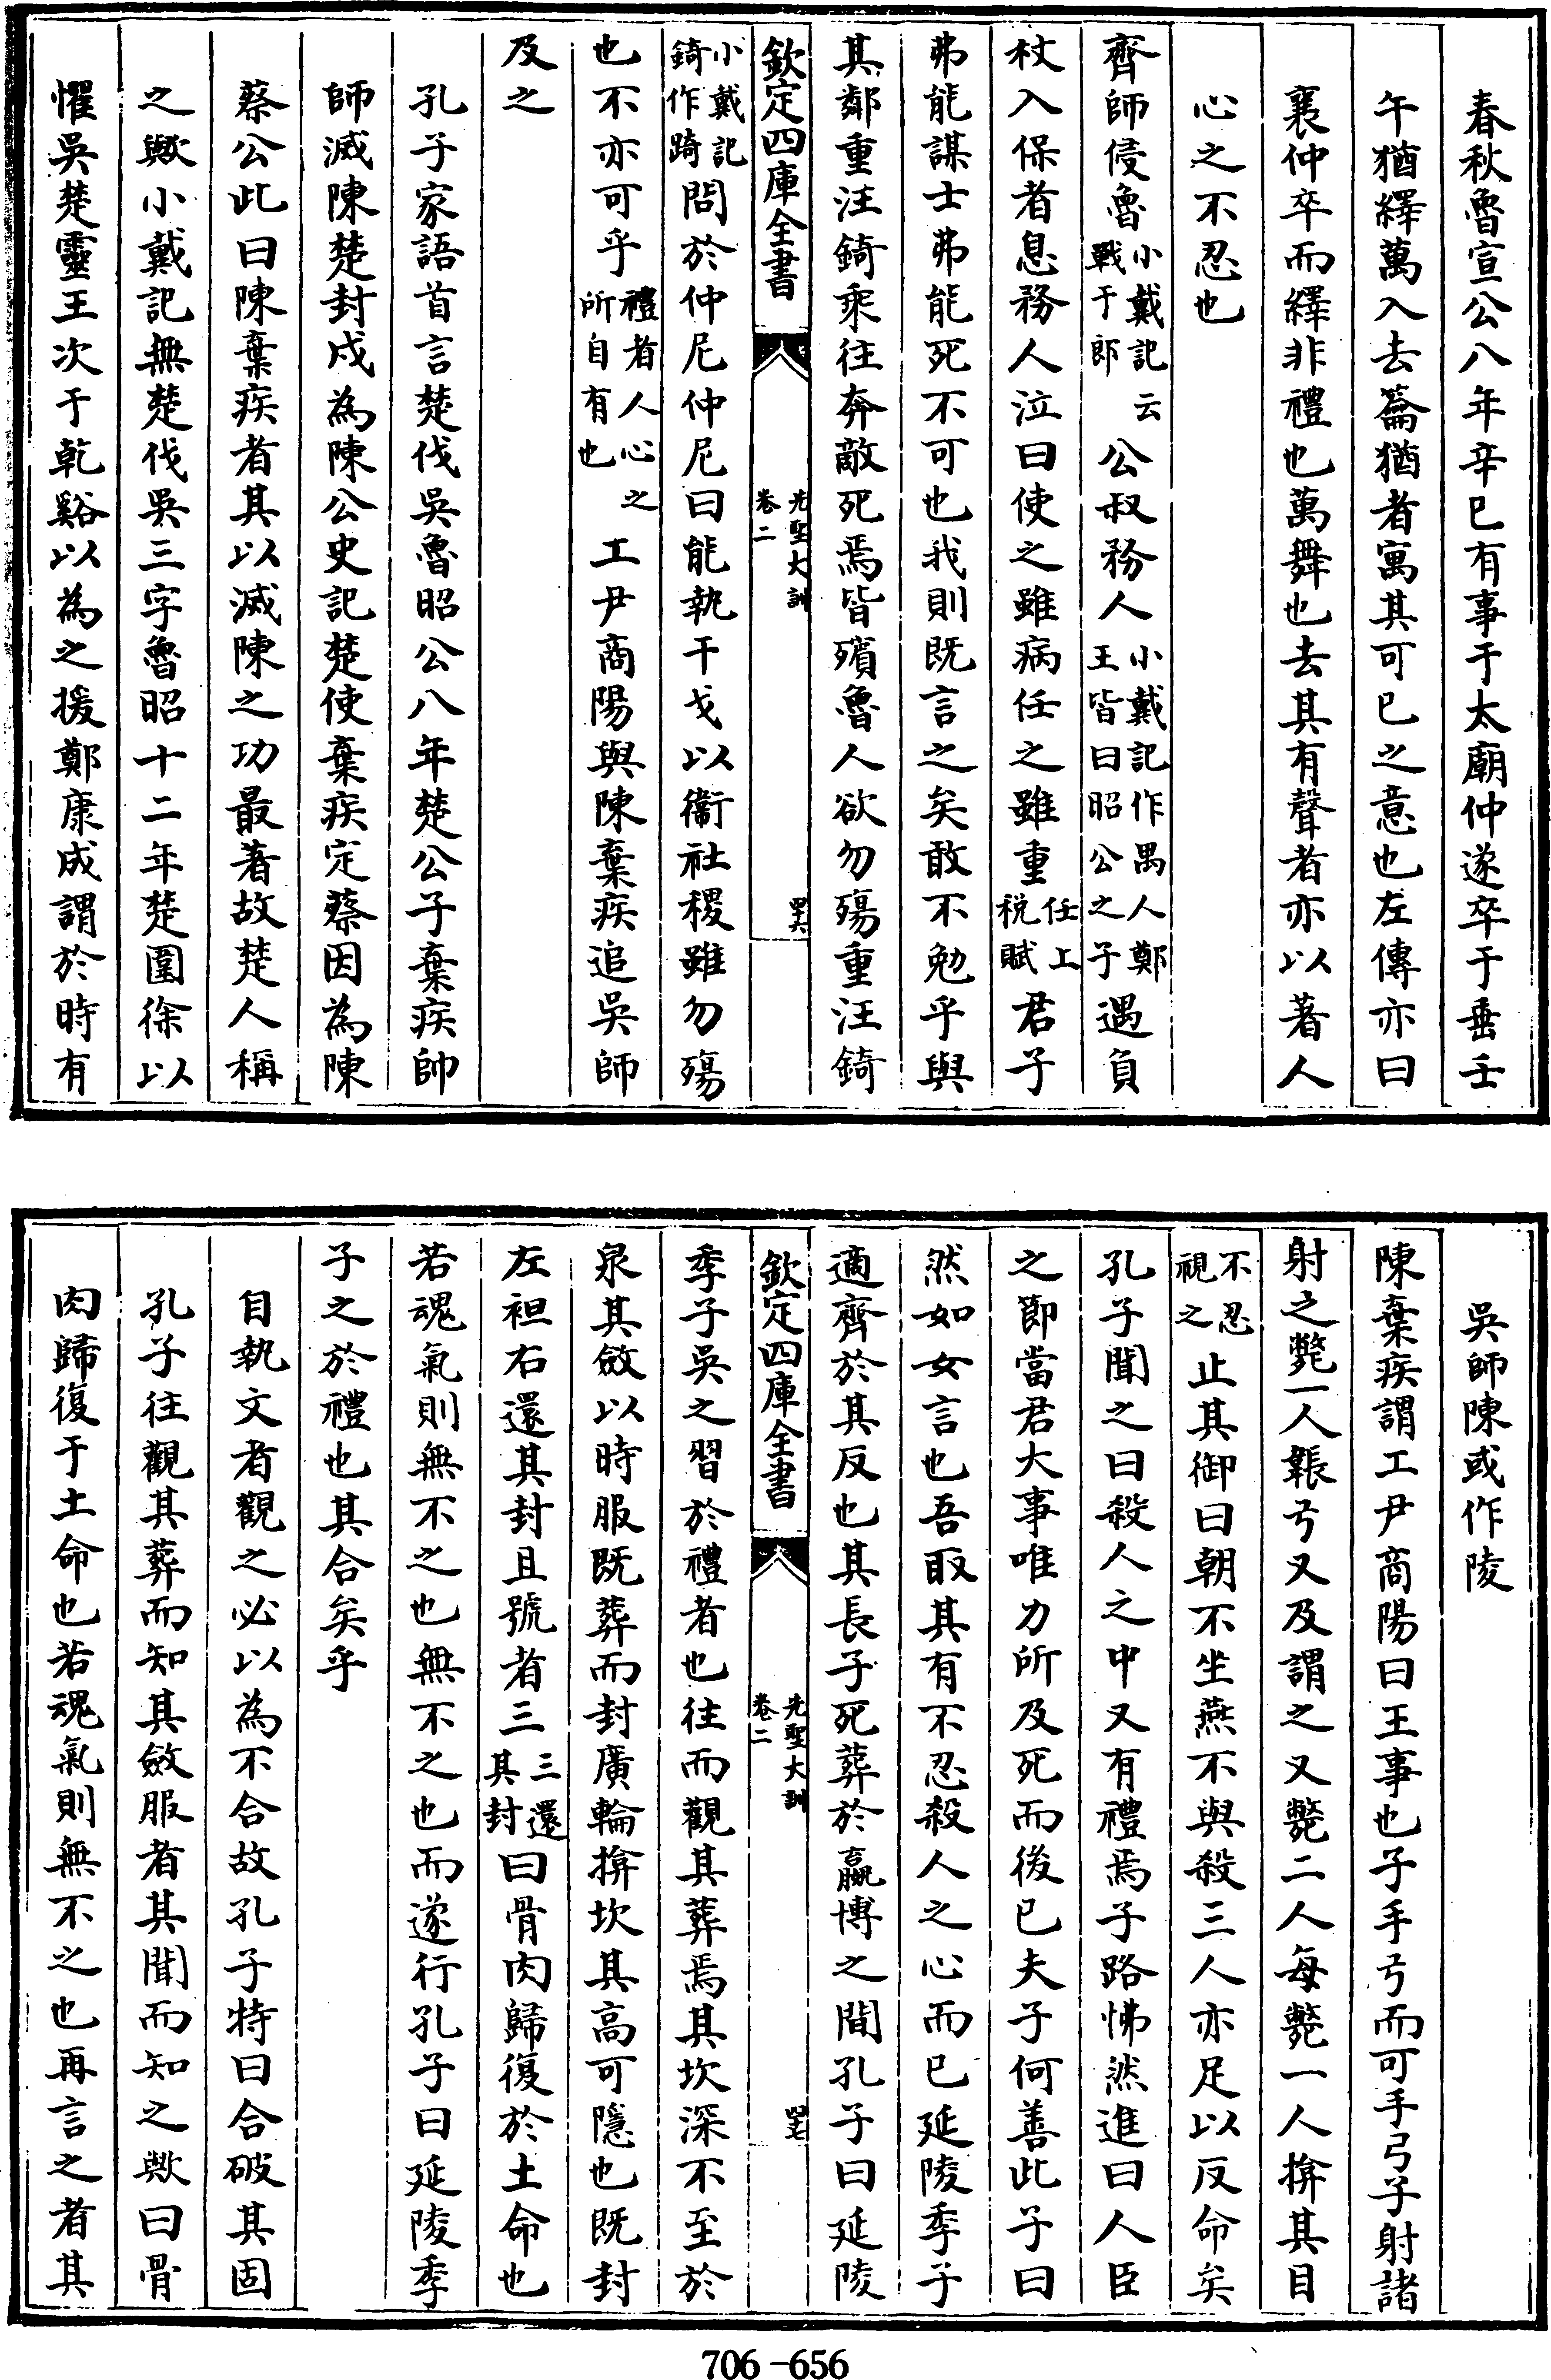 春秋魯宣公八年辛巳有事于太廟仲遂卒于垂壬
午猶繹萬入去籥猶者寓其可已之意也左傳亦曰
襄仲卒而繹非禮也萬舞也去其有聲者亦以著人
心之不忍也
齊師侵魯小戴記云戰于郎公叔務人小戴記作禺人鄭王皆曰昭公之子遇負
杖入保者息務人泣曰使之雖病任之雖重任上稅賦君子
弗能謀士弗能死不可也我則既言之矣敢不勉乎與
其鄰重汪錡乘往奔敵死焉皆殯魯人欲勿殤重汪錡
欽定四庫全書 先聖大訓卷二 四六
小戴記錡作踦問於仲尼仲尼曰能執干戈以衞社稷雖勿殤
也不亦可乎禮者人心之所自有也工尹商陽與陳棄疾追吳師
及之
孔子家語首言楚伐吳魯昭公八年楚公子棄疾帥
師滅陳楚封戍為陳公史記楚使棄疾定蔡因為陳
蔡公此曰陳棄疾者其以滅陳之功最著故楚人稱
之歟小戴記無楚伐吳三字魯昭十二年楚圍徐以
懼吳楚靈王次于乾谿以為之援鄭康成謂於時有
吳師陳或作陵
陳棄疾謂工尹商陽曰王事也子手弓而可手弓子射諸
射之斃一人韔弓又及謂之又斃二人每斃一人揜其目
不忍視之止其御曰朝不坐燕不與殺三人亦足以反命矣
孔子聞之曰殺人之中又有禮焉子路怫然進曰人臣
之節當君大事唯力所及死而後已夫子何善此子曰
然如女言也吾取其有不忍殺人之心而已延陵季子
適齊於其反也其長子死葬於嬴博之間孔子曰延陵
欽定四庫全書 先聖大訓卷二 四七
季子吳之習於禮者也往而觀其葬焉其坎深不至於
泉其斂以時服既葬而封廣輪揜坎其高可隱也既封
左袒右還其封且號者三三還其封曰骨肉歸復於土命也
若魂氣則無不之也無不之也而遂行孔子曰延陵季
子之於禮也其合矣乎
自執文者觀之必以為不合故孔子特曰合破其固
孔子往觀其葬而知其斂服者其聞而知之歟曰骨
肉歸復于土命也若魂氣則無不之也再言之者其
706-656